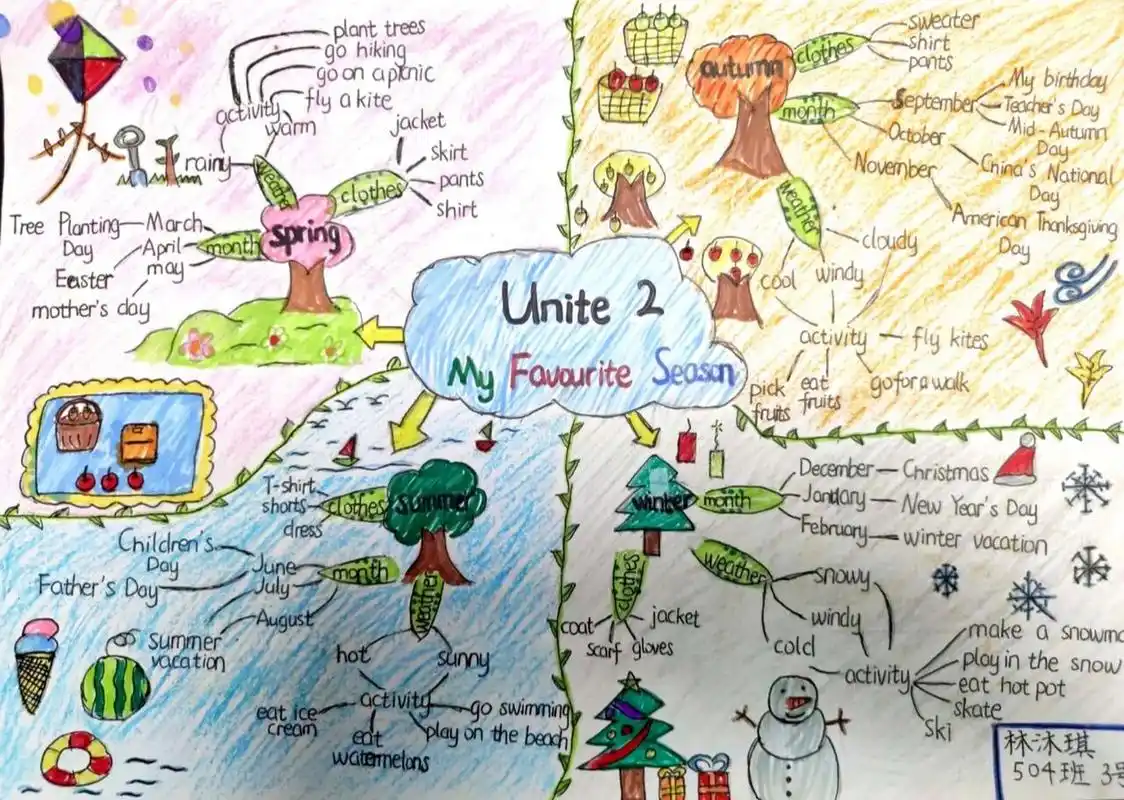 Unite 2
My Favourite Season
plant trees
go hiking
go on a picnic
fly a kite
activity
warm
rainy
weather
jacket
skirt
pants
shirt
clothes
spring
month
Tree Planting
Day
March
April
may
Easter
mother's day
autumn
clothes
sweater
shirt
pants
month
September
My birthday
Teacher's Day
Mid-Autumn
Day
October
China's National
Day
November
American Thanksgiving
Day
weather
cool
windy
cloudy
activity
fly kites
pick
fruits
eat
fruits
go for a walk
summer
T-shirt
shorts
dress
clothes
month
Children's
Day
June
Father's Day
July
August
summer
vacation
weather
hot
sunny
activity
eat ice
cream
eat
watermelons
go swimming
play on the beach
winter
month
December
Christmas
January
New Year's Day
February
winter vacation
clothes
coat
scarf
gloves
jacket
weather
snowy
windy
cold
activity
make a snowma
play in the snow
eat hot pot
skate
ski
林沐琪
504班 3号